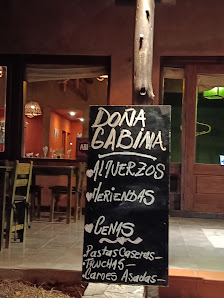 DOÑA
GABINA
ALMUERZOS
MERIENDAS
CENAS
Pastas Caseras-
TRUCHAS-
Carnes Asadas-